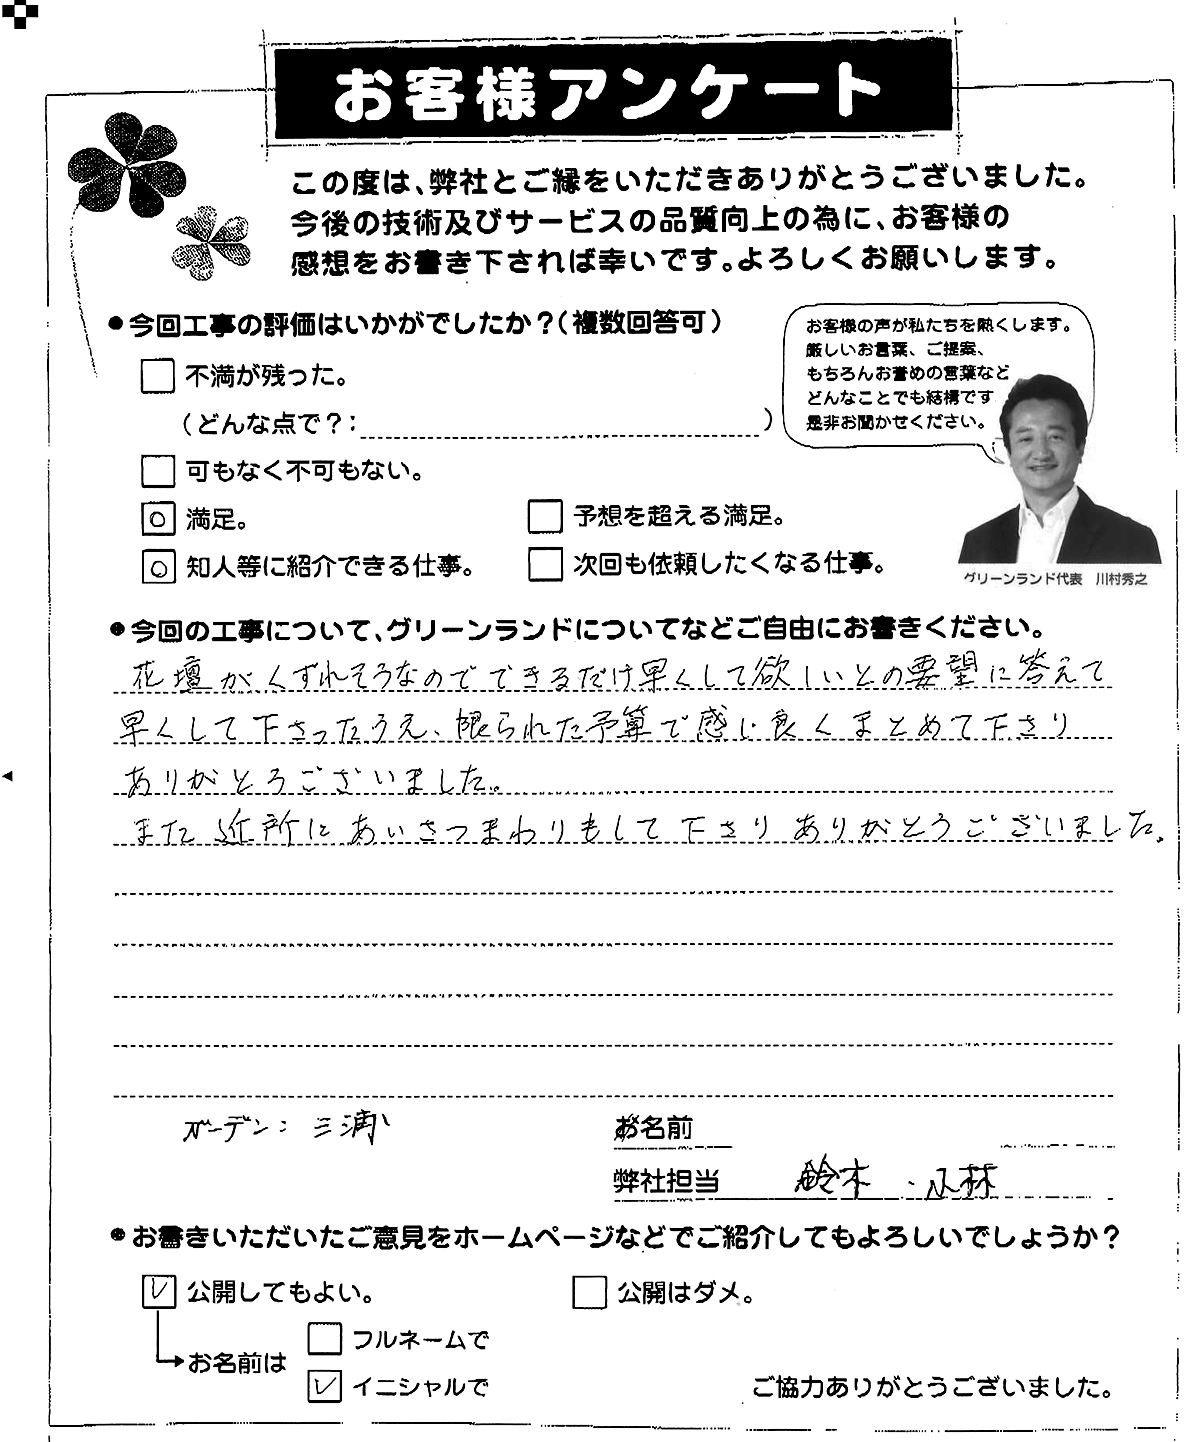 お客様アンケート
この度は、弊社とご縁をいただきありがとうございました。
今後の技術及びサービスの品質向上の為に、お客様の
感想をお書き下されば幸いです。よろしくお願いします。
●今回工事の評価はいかがでしたか？（複数回答可）
お客様の声が私たちを熱くします。
厳しいお言葉、ご提案、
もちろんお誉めの言葉など
どんなことでも結構です
是非お聞かせください。
不満が残った。
（どんな点で？：　）
可もなく不可もない。
満足。　予想を超える満足。
知人等に紹介できる仕事。　次回も依頼したくなる仕事。
グリーンランド代表　川村秀之
●今回の工事について、グリーンランドについてなどご自由にお書きください。
花壇がくずれそうなのでできるだけ早くして欲しいとの要望に答えて
早くして下さったうえ、限られた予算で感じ良くまとめて下さり
ありがとうございました。
また近所にあいさつまわりもして下さりありがとうございました。
ガーデン：三浦　お名前
弊社担当　鈴木・小林
●お書きいただいたご意見をホームページなどでご紹介してもよろしいでしょうか？
公開してもよい。　公開はダメ。
フルネームで
お名前は
イニシャルで　ご協力ありがとうございました。